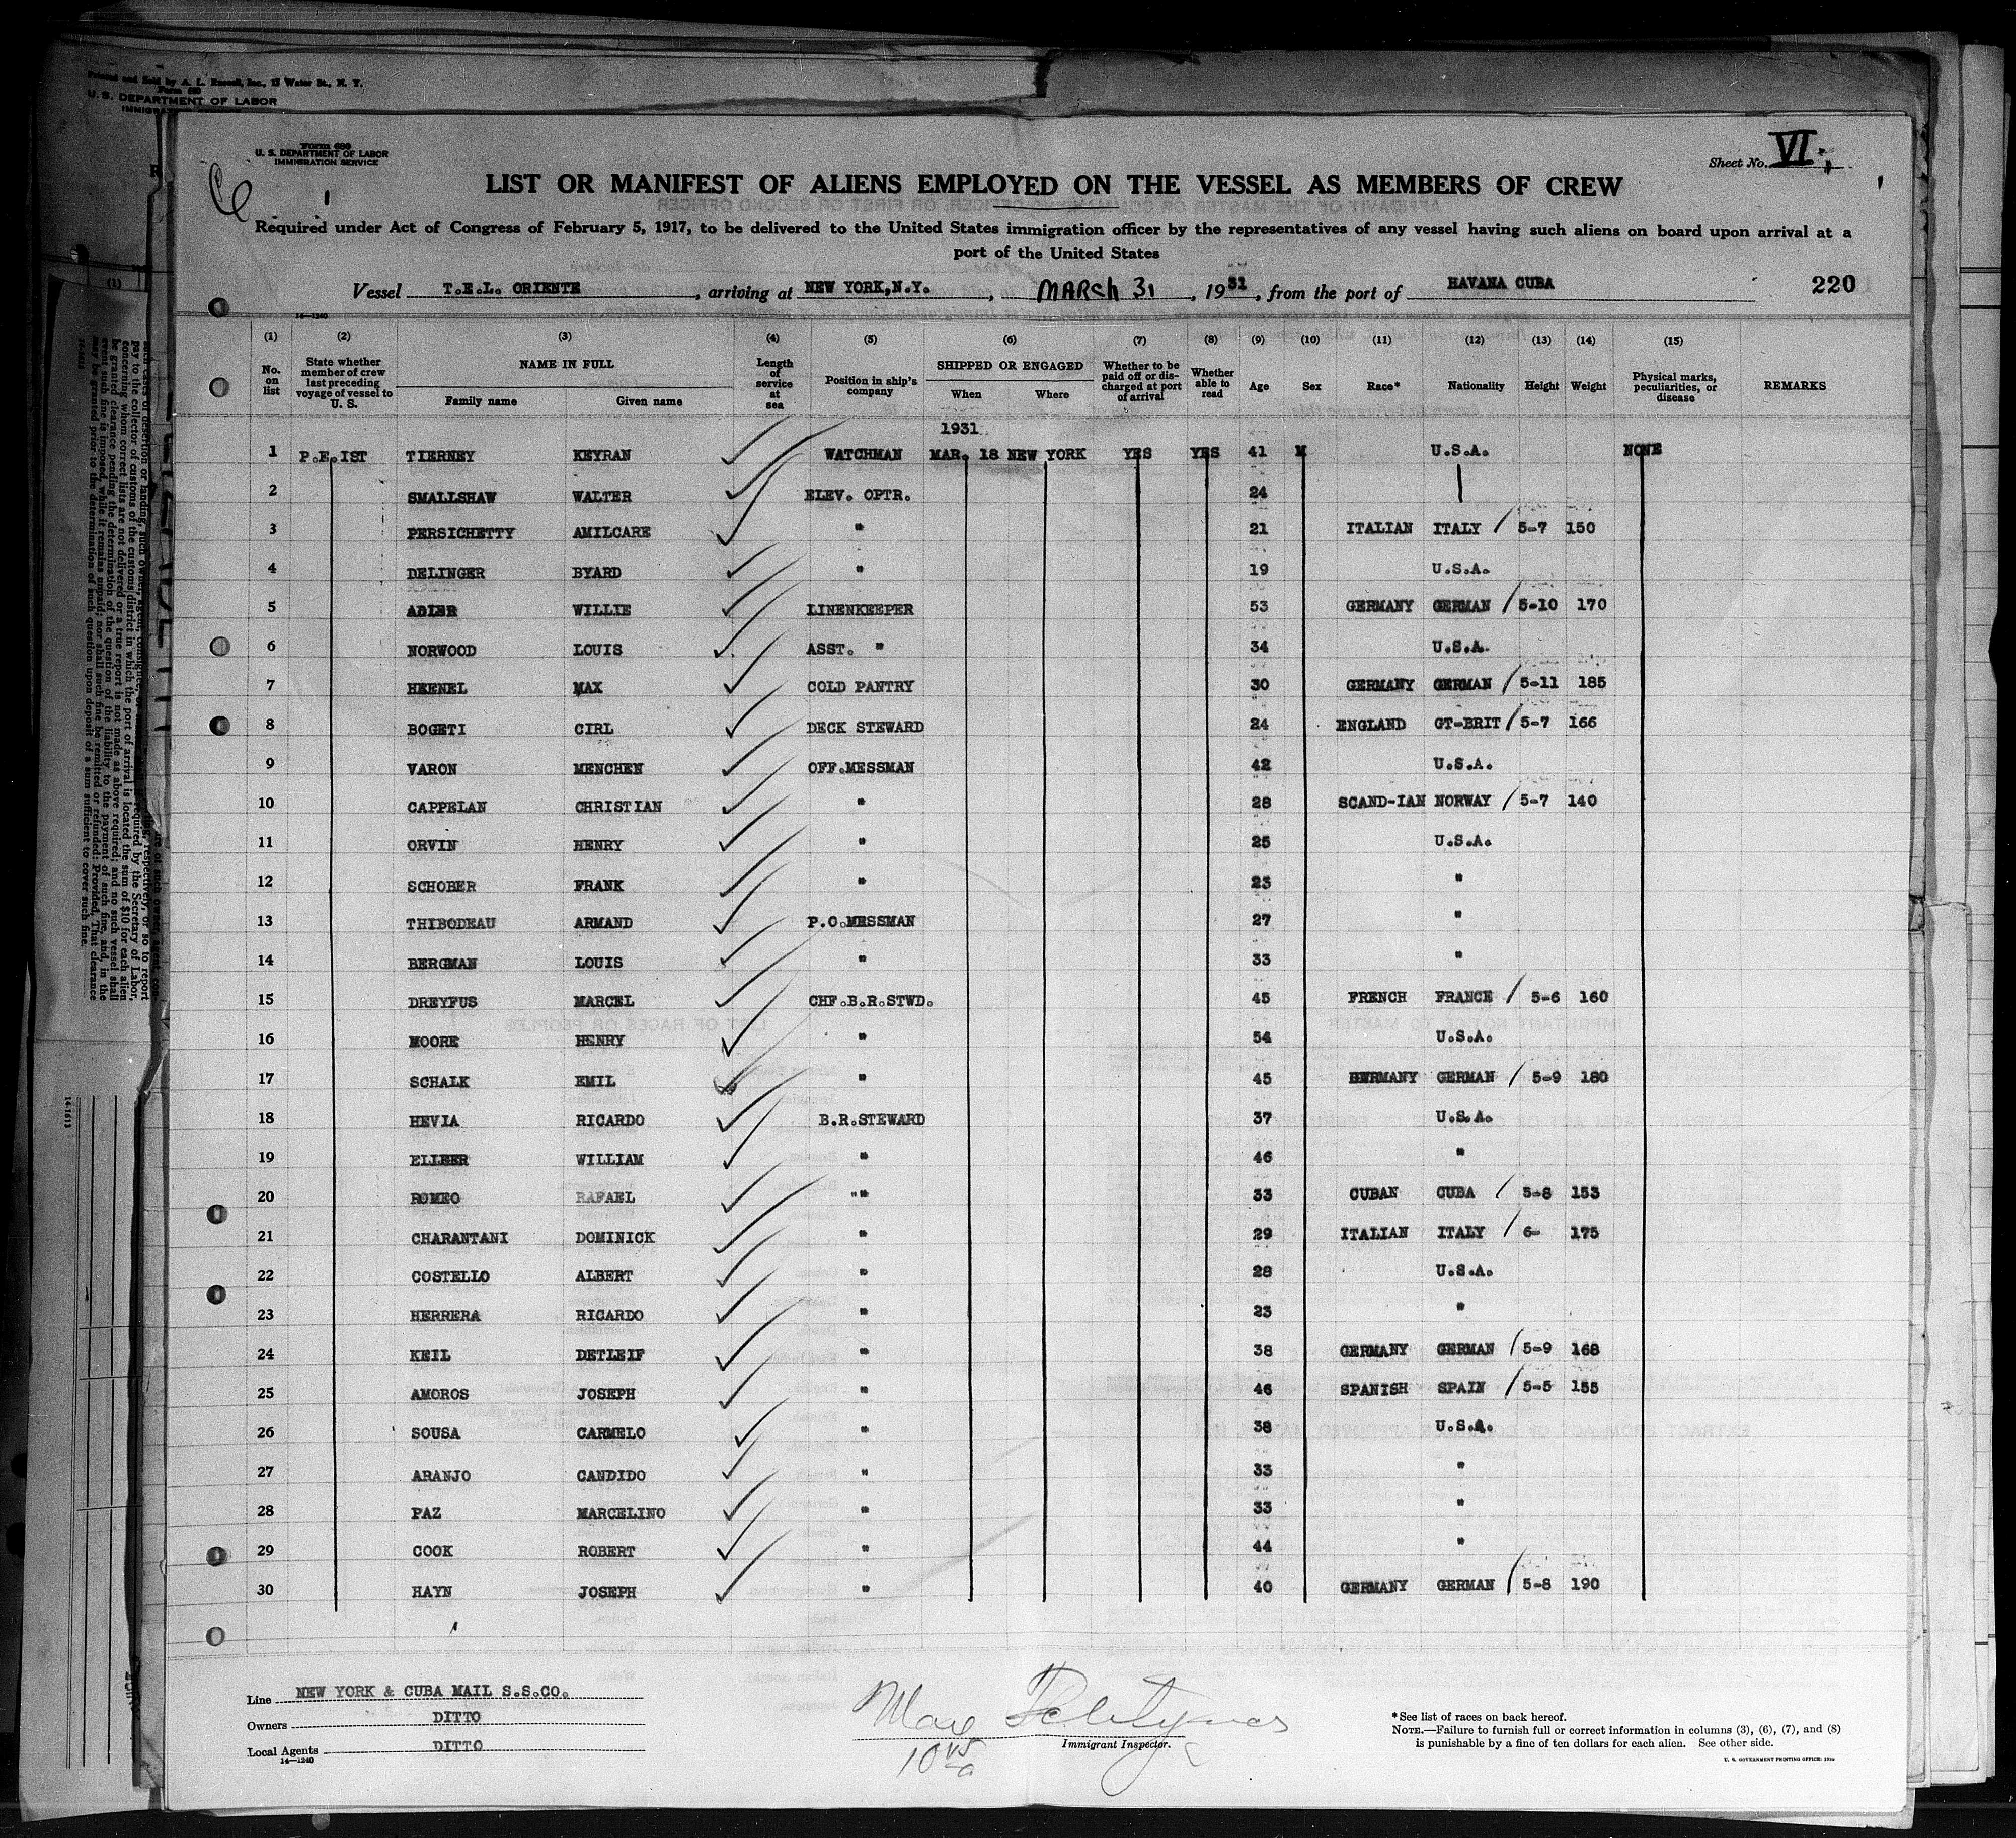 Printed and Sold by A. L. Russell, Inc., 17 Water St., N. Y.
Form 680
U. S. DEPARTMENT OF LABOR
Form 680
U. S. DEPARTMENT OF LABOR
IMMIGRATION SERVICE
Sheet No. VI
LIST OR MANIFEST OF ALIENS EMPLOYED ON THE VESSEL AS MEMBERS OF CREW
Required under Act of Congress of February 5, 1917, to be delivered to the United States immigration officer by the representatives of any vessel having such aliens on board upon arrival at a
port of the United States
Vessel T.E.L. ORIENTE, arriving at NEW YORK,N.Y., MARCH 31, 1931, from the port of HAVANA CUBA 220
14-1240
(1) (2) (3) (4) (5) (6) (7) (8) (9) (10) (11) (12) (13) (14) (15)
No. on list State whether member of crew last preceding voyage of vessel to U. S. NAME IN FULL Family name Given name Length of service at sea Position in ship's company SHIPPED OR ENGAGED When Where Whether to be paid off or discharged at port of arrival Whether able to read Age Sex Race* Nationality Height Weight Physical marks, peculiarities, or disease REMARKS
1931
1 P.E.IST TIERNEY KEYRAN WATCHMAN MAR. 18 NEW YORK YES YES 41 M U.S.A. NONE
2 SMALLSHAW WALTER ELEV. OPTR. 24
3 PERSICHETTY AMILCARE " 21 ITALIAN ITALY / 5-7 150
4 DELINGER BYARD " 19 U.S.A.
5 ADLER WILLIE LINENKEEPER 53 GERMANY GERMAN / 5-10 170
6 NORWOOD LOUIS ASST. " 34 U.S.A.
7 HEENEL MAX COLD PANTRY 30 GERMANY GERMAN / 5-11 185
8 BOGETI CIRL DECK STEWARD 24 ENGLAND GT-BRIT / 5-7 166
9 VARON MENCHEN OFF.MESSMAN 42 U.S.A.
10 CAPPELAN CHRISTIAN " 28 SCAND-IAN NORWAY / 5-7 140
11 ORVIN HENRY " 25 U.S.A.
12 SCHOBER FRANK " 23 "
13 THIBODEAU ARMAND P.O.MESSMAN 27 "
14 BERGMAN LOUIS " 33 "
15 DREYFUS MARCEL CHF.B.R.STWD. 45 FRENCH FRANCE / 5-6 160
16 MOORE HENRY " 54 U.S.A.
17 SCHALK EMIL " 45 GERMANY GERMAN / 5-9 180
18 HEVIA RICARDO B.R.STEWARD 37 U.S.A.
19 WILLIAM " 46 "
20 ROMEO RAFAEL "" 33 CUBAN CUBA / 5-8 153
21 CHARANTANI DOMINICK " 29 ITALIAN ITALY / 6- 175
22 COSTELLO ALBERT " 28 U.S.A.
23 HERRERA RICARDO " 23 "
24 KEIL DETLEIF " 38 GERMANY GERMAN / 5-9 168
25 AMOROS JOSEPH " 46 SPANISH SPAIN / 5-5 155
26 SOUSA CARMELO " 38 U.S.A.
27 ARANJO CANDIDO " 33 "
28 PAZ MARCELINO " 33 "
29 COOK ROBERT " 44 "
30 HAYN JOSEPH " 40 GERMANY GERMAN / 5-8 190
Line NEW YORK & CUBA MAIL S.S.CO.
Owners DITTO
Local Agents DITTO
14-1240
Max
Immigrant Inspector.
*See list of races on back hereof.
NOTE.—Failure to furnish full or correct information in columns (3), (6), (7), and (8)
is punishable by a fine of ten dollars for each alien. See other side.
U. S. GOVERNMENT PRINTING OFFICE: 1929